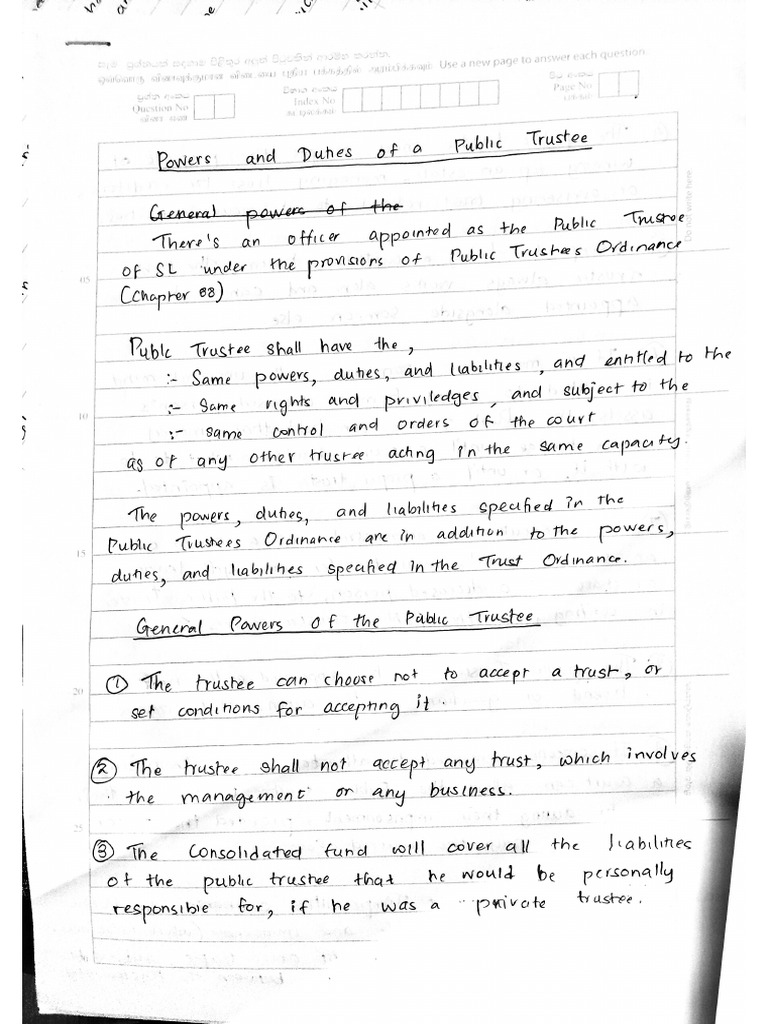 සෑම ප්‍රශ්නයක් සඳහාම පිළිතුර අලුත් පිටුවකින් ආරම්භ කරන්න.
ஒவ்வொரு வினாவுக்குமான விடையை புதிய பக்கத்தில் ஆரம்பிக்கவும். Use a new page to answer each question.
ප්‍රශ්න අංකය
Question No
வினா எண்
විභාග අංකය
Index No
சுட்டிலக்கம்
පිටු අංකය
Page No
பக்கம்
Powers and Duties of a Public Trustee
General powers of the
There's an officer appointed as the Public Trustee
of SL under the provisions of Public Trustees Ordinance
05
(Chapter 88)
Publc Trustee shall have the,
:- Same powers, duties, and liabilities, and entitled to the
10
:- Same rights and priviledges, and subject to the
:- same control and orders of the court
as of any other trustee acting in the same capacity.
The powers, duties, and liabilities specified in the
Public Trustees Ordinance are in addition to the powers,
15
duties, and liabilities specified in the Trust Ordinance.
General Powers of the Public Trustee
① The trustee can choose not to accept a trust, or
20
set conditions for accepting it.
② The trustee shall not accept any trust, which involves
the management or any business.
25
③ The consolidated fund will cover all the liabilities
of the public trustee that he would be personally
responsible for, if he was a private trustee.
Do not write here